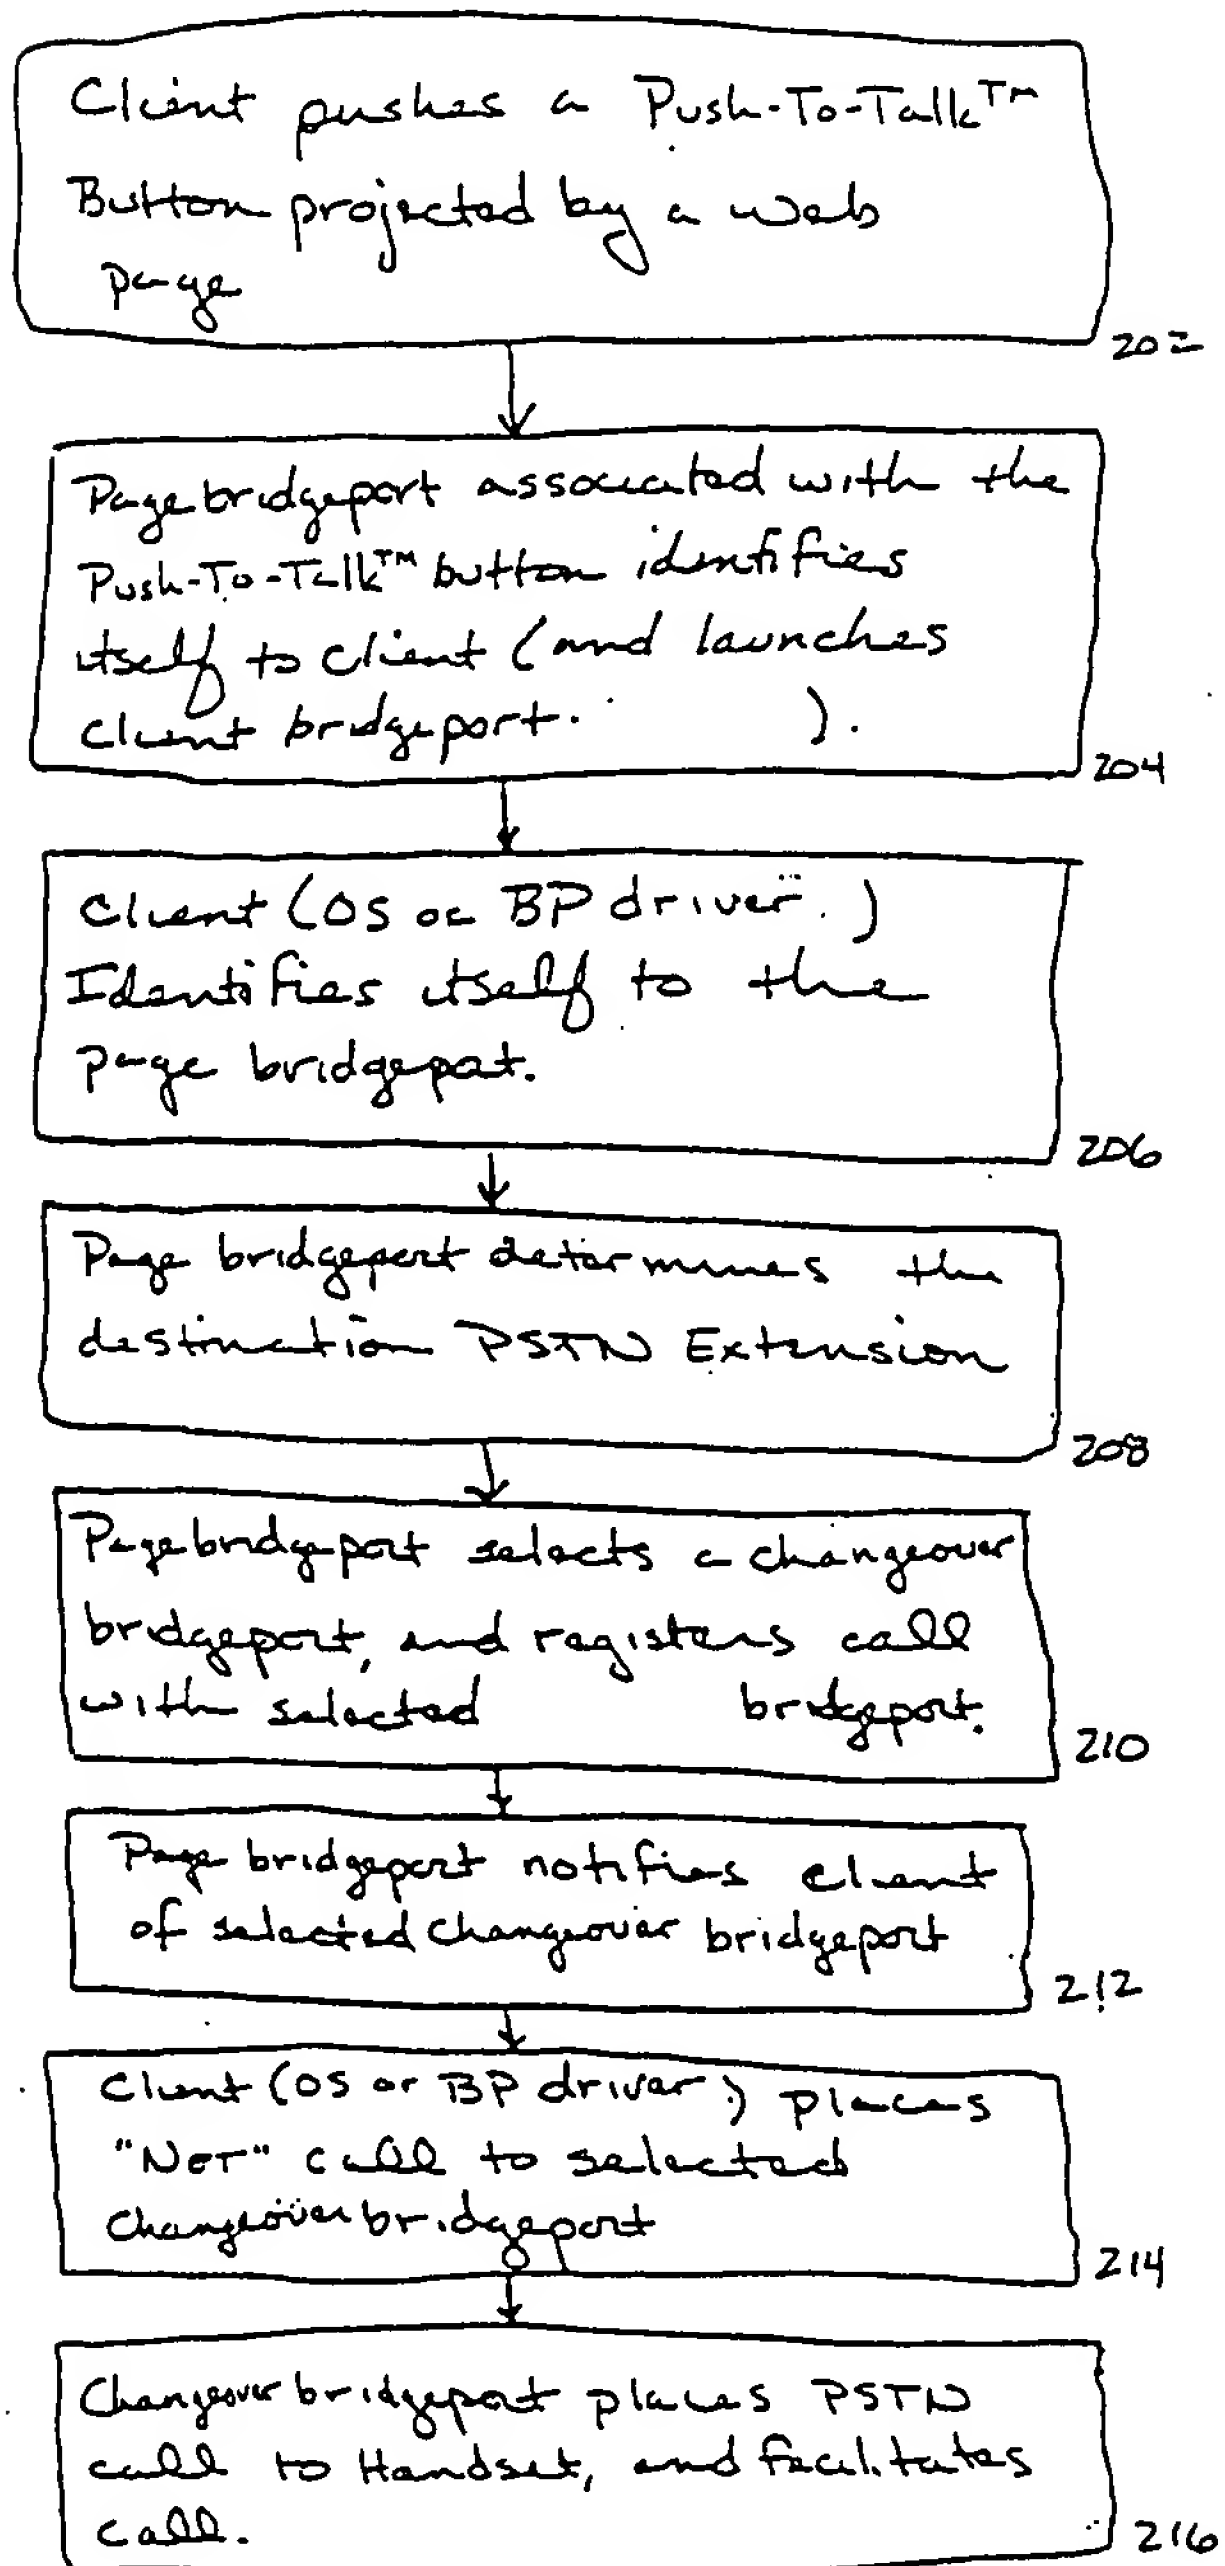 Client pushes a Push-To-Talk™
Button projected by a web
page
202
Page bridgeport associated with the
Push-To-Talk™ button identifies
itself to client (and launches
client bridgeport. ).
204
Client (OS or BP driver )
Identifies itself to the
page bridgeport.
206
Page bridgeport determines the
destination PSTN Extension
208
Page bridgeport selects a changeover
bridgeport, and registers call
with selected bridgeport.
210
Page bridgeport notifies client
of selected changeover bridgeport
212
Client (OS or BP driver ) places
"NET" call to selected
changeover bridgeport
214
Changeover bridgeport places PSTN
call to Handset, and facilitates
call.
216